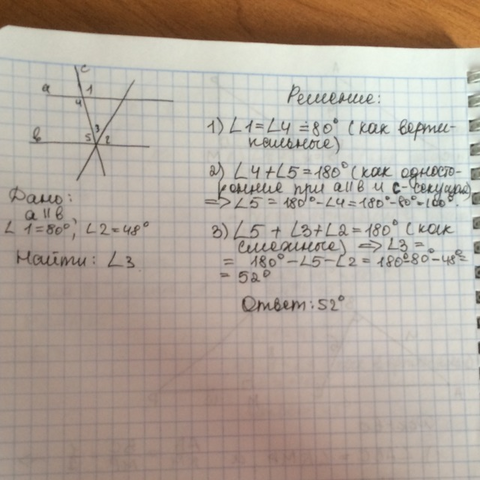 c
a 1
4
3
b 5 2
Дано:
a || b
∠1=80°, ∠2=48°
Найти: ∠3
Решение:
1) ∠1=∠4=80° (как верти-
кальные)
2) ∠4+∠5=180° (как односто-
ронние при a||b и c-секущей)
=> ∠5 = 180°-∠4=180°-80°=100°
3) ∠5 + ∠3+∠2=180° (как
смежные) => ∠3 =
= 180°-∠5-∠2=180°-80°-48°=
= 52°
Ответ: 52°